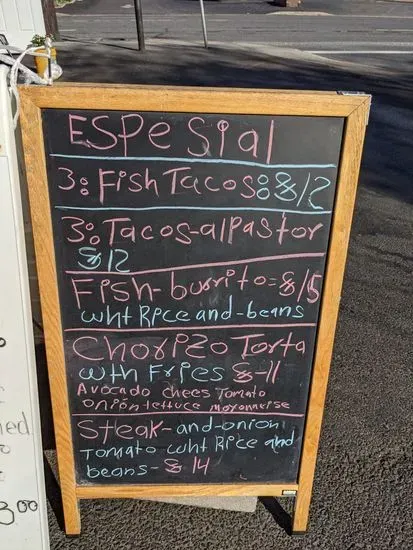 ESPeSial
3: Fish Tacos: $12
3: Tacos-alPastor
$12
Fish-burrito=$15
wht Rice and-beans
Chorizo Torta
wth Fries $-11
Avocado chees Tomato
onion lettuce mayonneise
Steak-and-onion
Tomato wht Rice and
beans-$14
ned
3.00